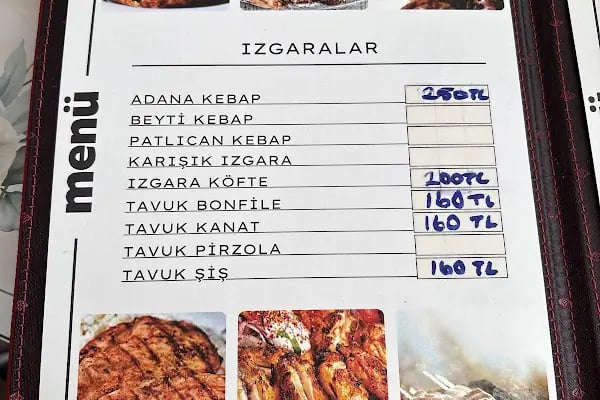 menü
IZGARALAR
ADANA KEBAP 250TL
BEYTİ KEBAP
PATLICAN KEBAP
KARIŞIK IZGARA
IZGARA KÖFTE 200TL
TAVUK BONFİLE 160TL
TAVUK KANAT 160 TL
TAVUK PİRZOLA
TAVUK ŞİŞ 160 TL